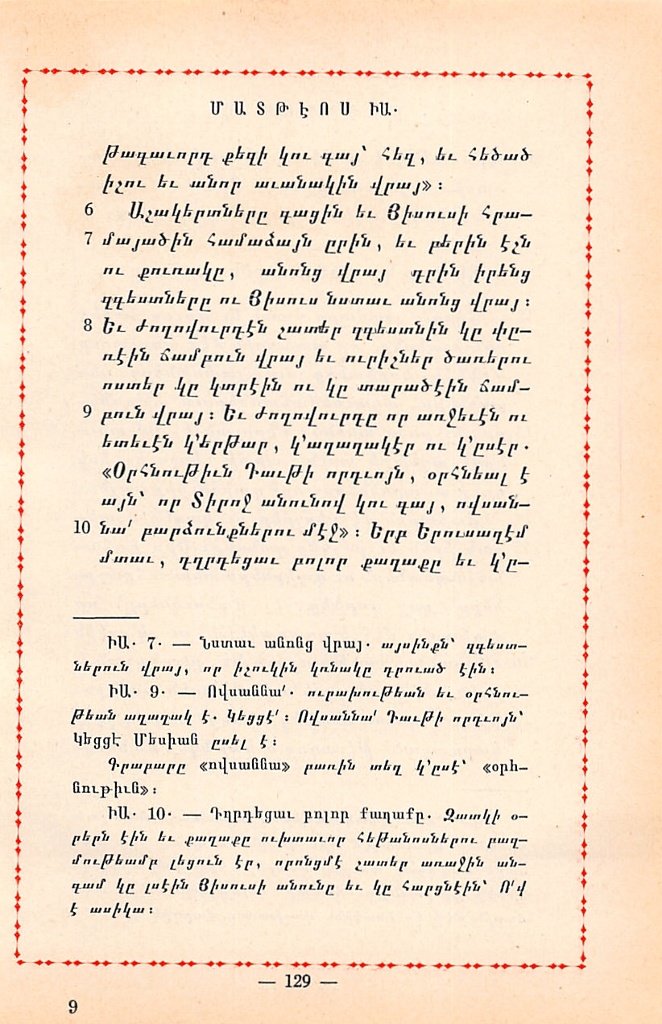 ՄԱՏԹԷՈՍ ԻԱ․
թագաւորդ քեզի կու գայ՝ հեզ, եւ հեծած
իշու եւ անոր աւանակին վրայ»։
6 Աշակերտները գացին եւ Յիսուսի հրա—
7 մայածին համաձայն ըրին, եւ բերին էշն
ու քուռակը, անոնց վրայ դրին իրենց
զգեստները ու Յիսուս նստաւ անոնց վրայ։
8 Եւ ժողովուրդէն շատեր զգեստնին կը փը—
ռէին ճամբուն վրայ եւ ուրիշներ ծառերու
ոստեր կը կտրէին ու կը տարածէին ճամ—
9 բուն վրայ։ Եւ ժողովուրդը որ առջեւէն ու
ետեւէն կ՚երթար, կ՚աղաղակէր ու կ՚ըսէր․
«Օրհնութիւն Դաւթի որդւոյն, օրհնեալ է
այն՝ որ Տիրոջ անունով կու գայ, ովսան—
10 նա՛ բարձունքներու մէջ»։ Երբ Երուսաղէմ
մտաւ, դղրդեցաւ բոլոր քաղաքը եւ կ՚ը—
ԻԱ․ 7․ — Նստաւ անոնց վրայ․ այսինքն՝ զգեստ—
ներուն վրայ, որ իշուկին կռնակը դրուած էին։
ԻԱ․ 9․ — Ովսաննա՛․ ուրախութեան եւ օրհնու—
թեան աղաղակ է․ Կեցցէ՛։ Ովսաննա՛ Դաւթի որդւոյն՝
Կեցցէ Մեսիան ըսել է։
Գրաբարը «ովսաննա» բառին տեղ կ՚ըսէ՝ «օրհ—
նութիւն»։
ԻԱ․ 10․ — Դղրդեցաւ բոլոր քաղաքը․ Զատկի օ—
րերն էին եւ քաղաքը ուխտաւոր հեթանոսներու բազ—
մութեամբ լեցուն էր, որոնցմէ շատեր առաջին ան—
գամ կը լսէին Յիսուսի անունը եւ կը հարցնէին՝ Ո՛վ
է ասիկա։
— 129 —
9